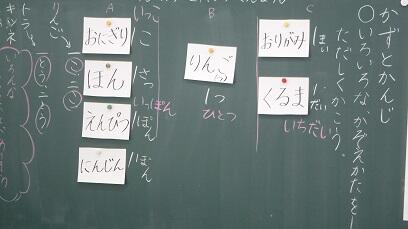 かずとかんじ
○いろいろなかぞえかたを
ただしくかこう。
C
おりがみ
1まい
くるま
1だい
いちだい
B
りんご
1つ
ひとつ
A
いっこ
おにぎり
こ
ほん
1さつ
いっぽん
えんぴつ
1ぽん
にんじん
1ぽん
りんご
こ
こ
トラ
とう
とう
キツネ